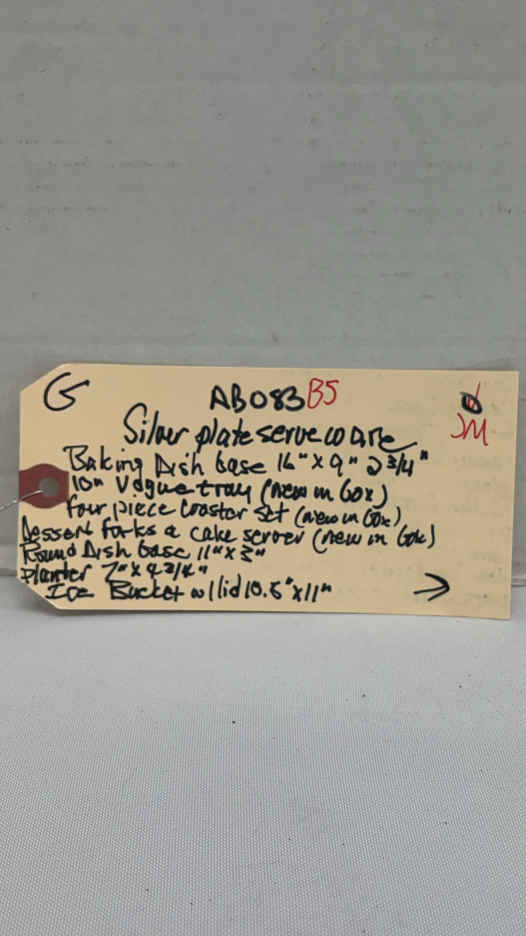 G AB083 B5
JM
Silver plate serveware
Baking Dish base 16" x 9" 2 3/4"
10" Vogue tray (new in box)
four piece coaster set (new in box)
Dessert forks & cake server (new in box)
Round Dish base 11" x 3"
Planter 7" x 9 3/4"
Ice Bucket w/lid 10.5" x 11" →